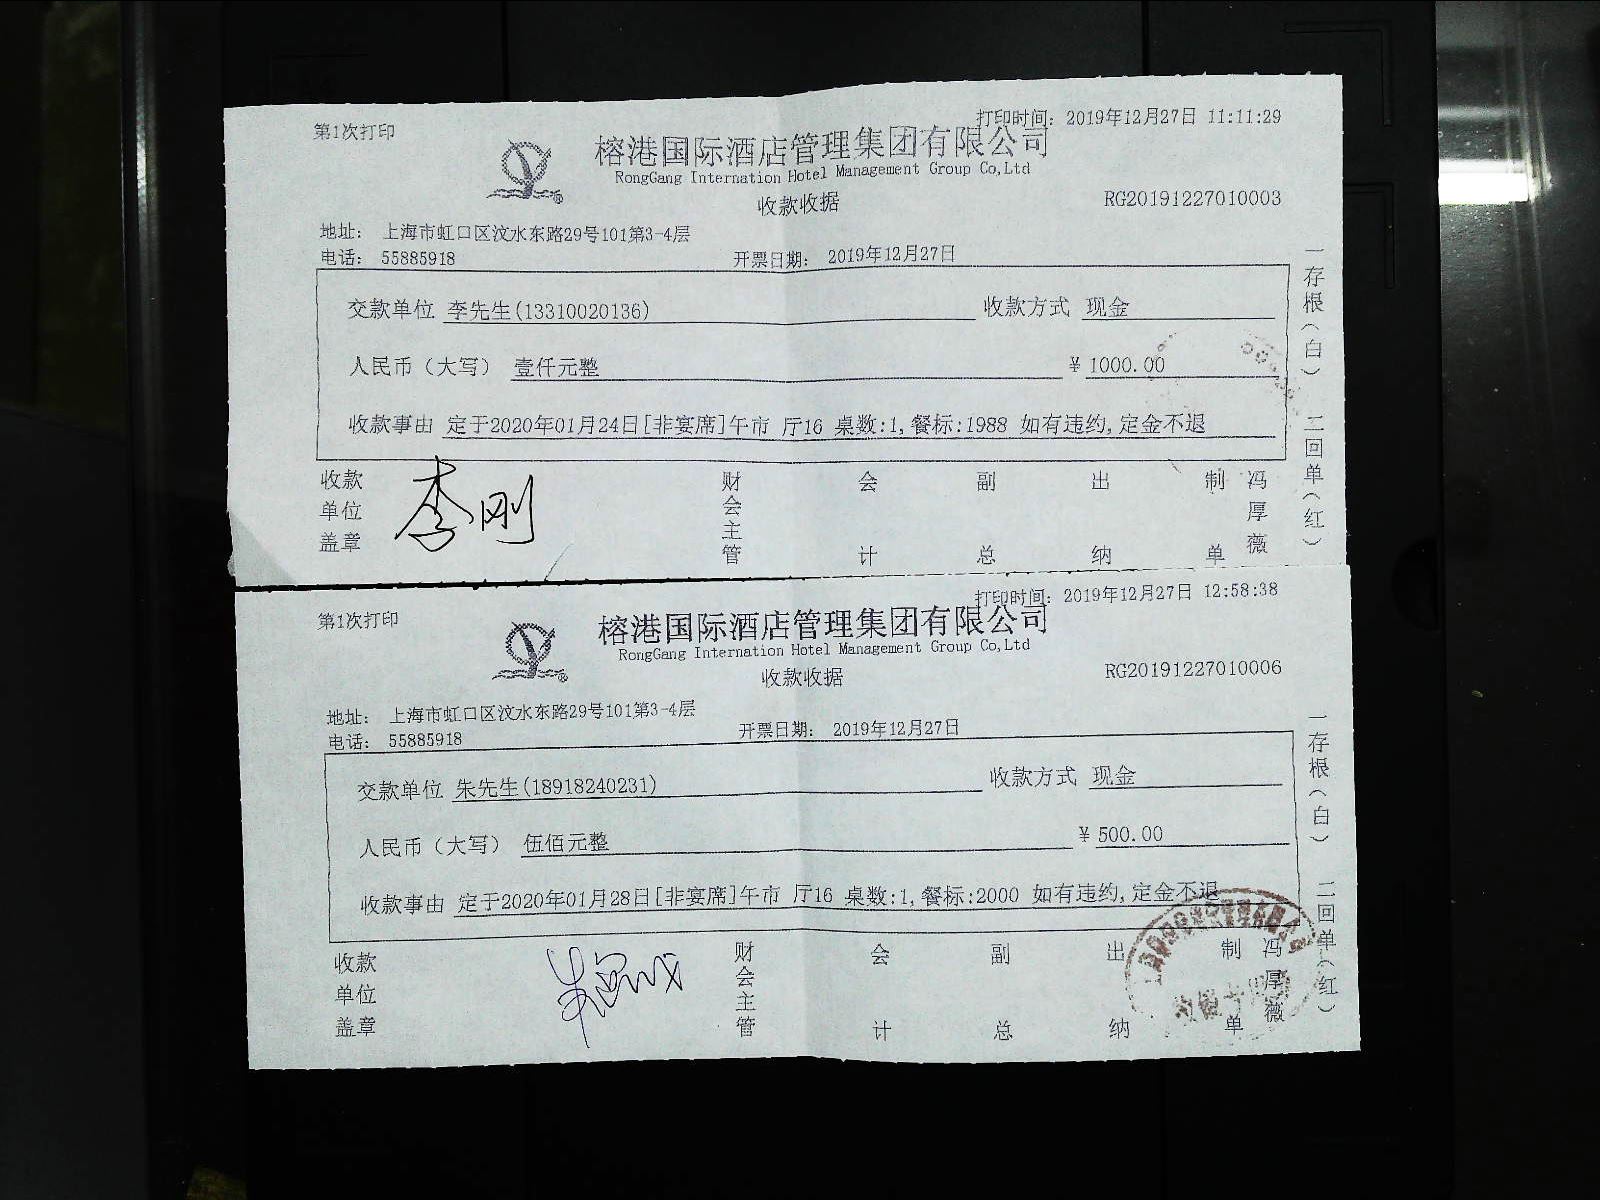 第1次打印
打印时间: 2019年12月27日 11:11:29
榕港国际酒店管理集团有限公司
RongGang Internation Hotel Management Group Co,Ltd
收款收据
RG20191227010003
地址: 上海市虹口区汶水东路29号101第3-4层
电话: 55885918 开票日期: 2019年12月27日
交款单位 李先生(13310020136) 收款方式 现金
人民币（大写） 壹仟元整 ￥1000.00
收款事由 定于2020年01月24日[非宴席]午市 厅16 桌数:1,餐标:1988 如有违约,定金不退
收款单位盖章 李刚 财会主管 会计 副总 出纳 制单 冯厚薇
一存根(白) 二回单(红)
第1次打印
打印时间: 2019年12月27日 12:58:38
榕港国际酒店管理集团有限公司
RongGang Internation Hotel Management Group Co,Ltd
收款收据
RG20191227010006
地址: 上海市虹口区汶水东路29号101第3-4层
电话: 55885918 开票日期: 2019年12月27日
交款单位 朱先生(18918240231) 收款方式 现金
人民币（大写） 伍佰元整 ￥500.00
收款事由 定于2020年01月28日[非宴席]午市 厅16 桌数:1,餐标:2000 如有违约,定金不退
收款单位盖章 财会主管 会计 副总 出纳 制单 冯厚薇
一存根(白) 二回单(红)